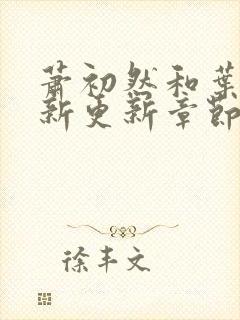 萧初然和叶
新更新章节
徐丰文